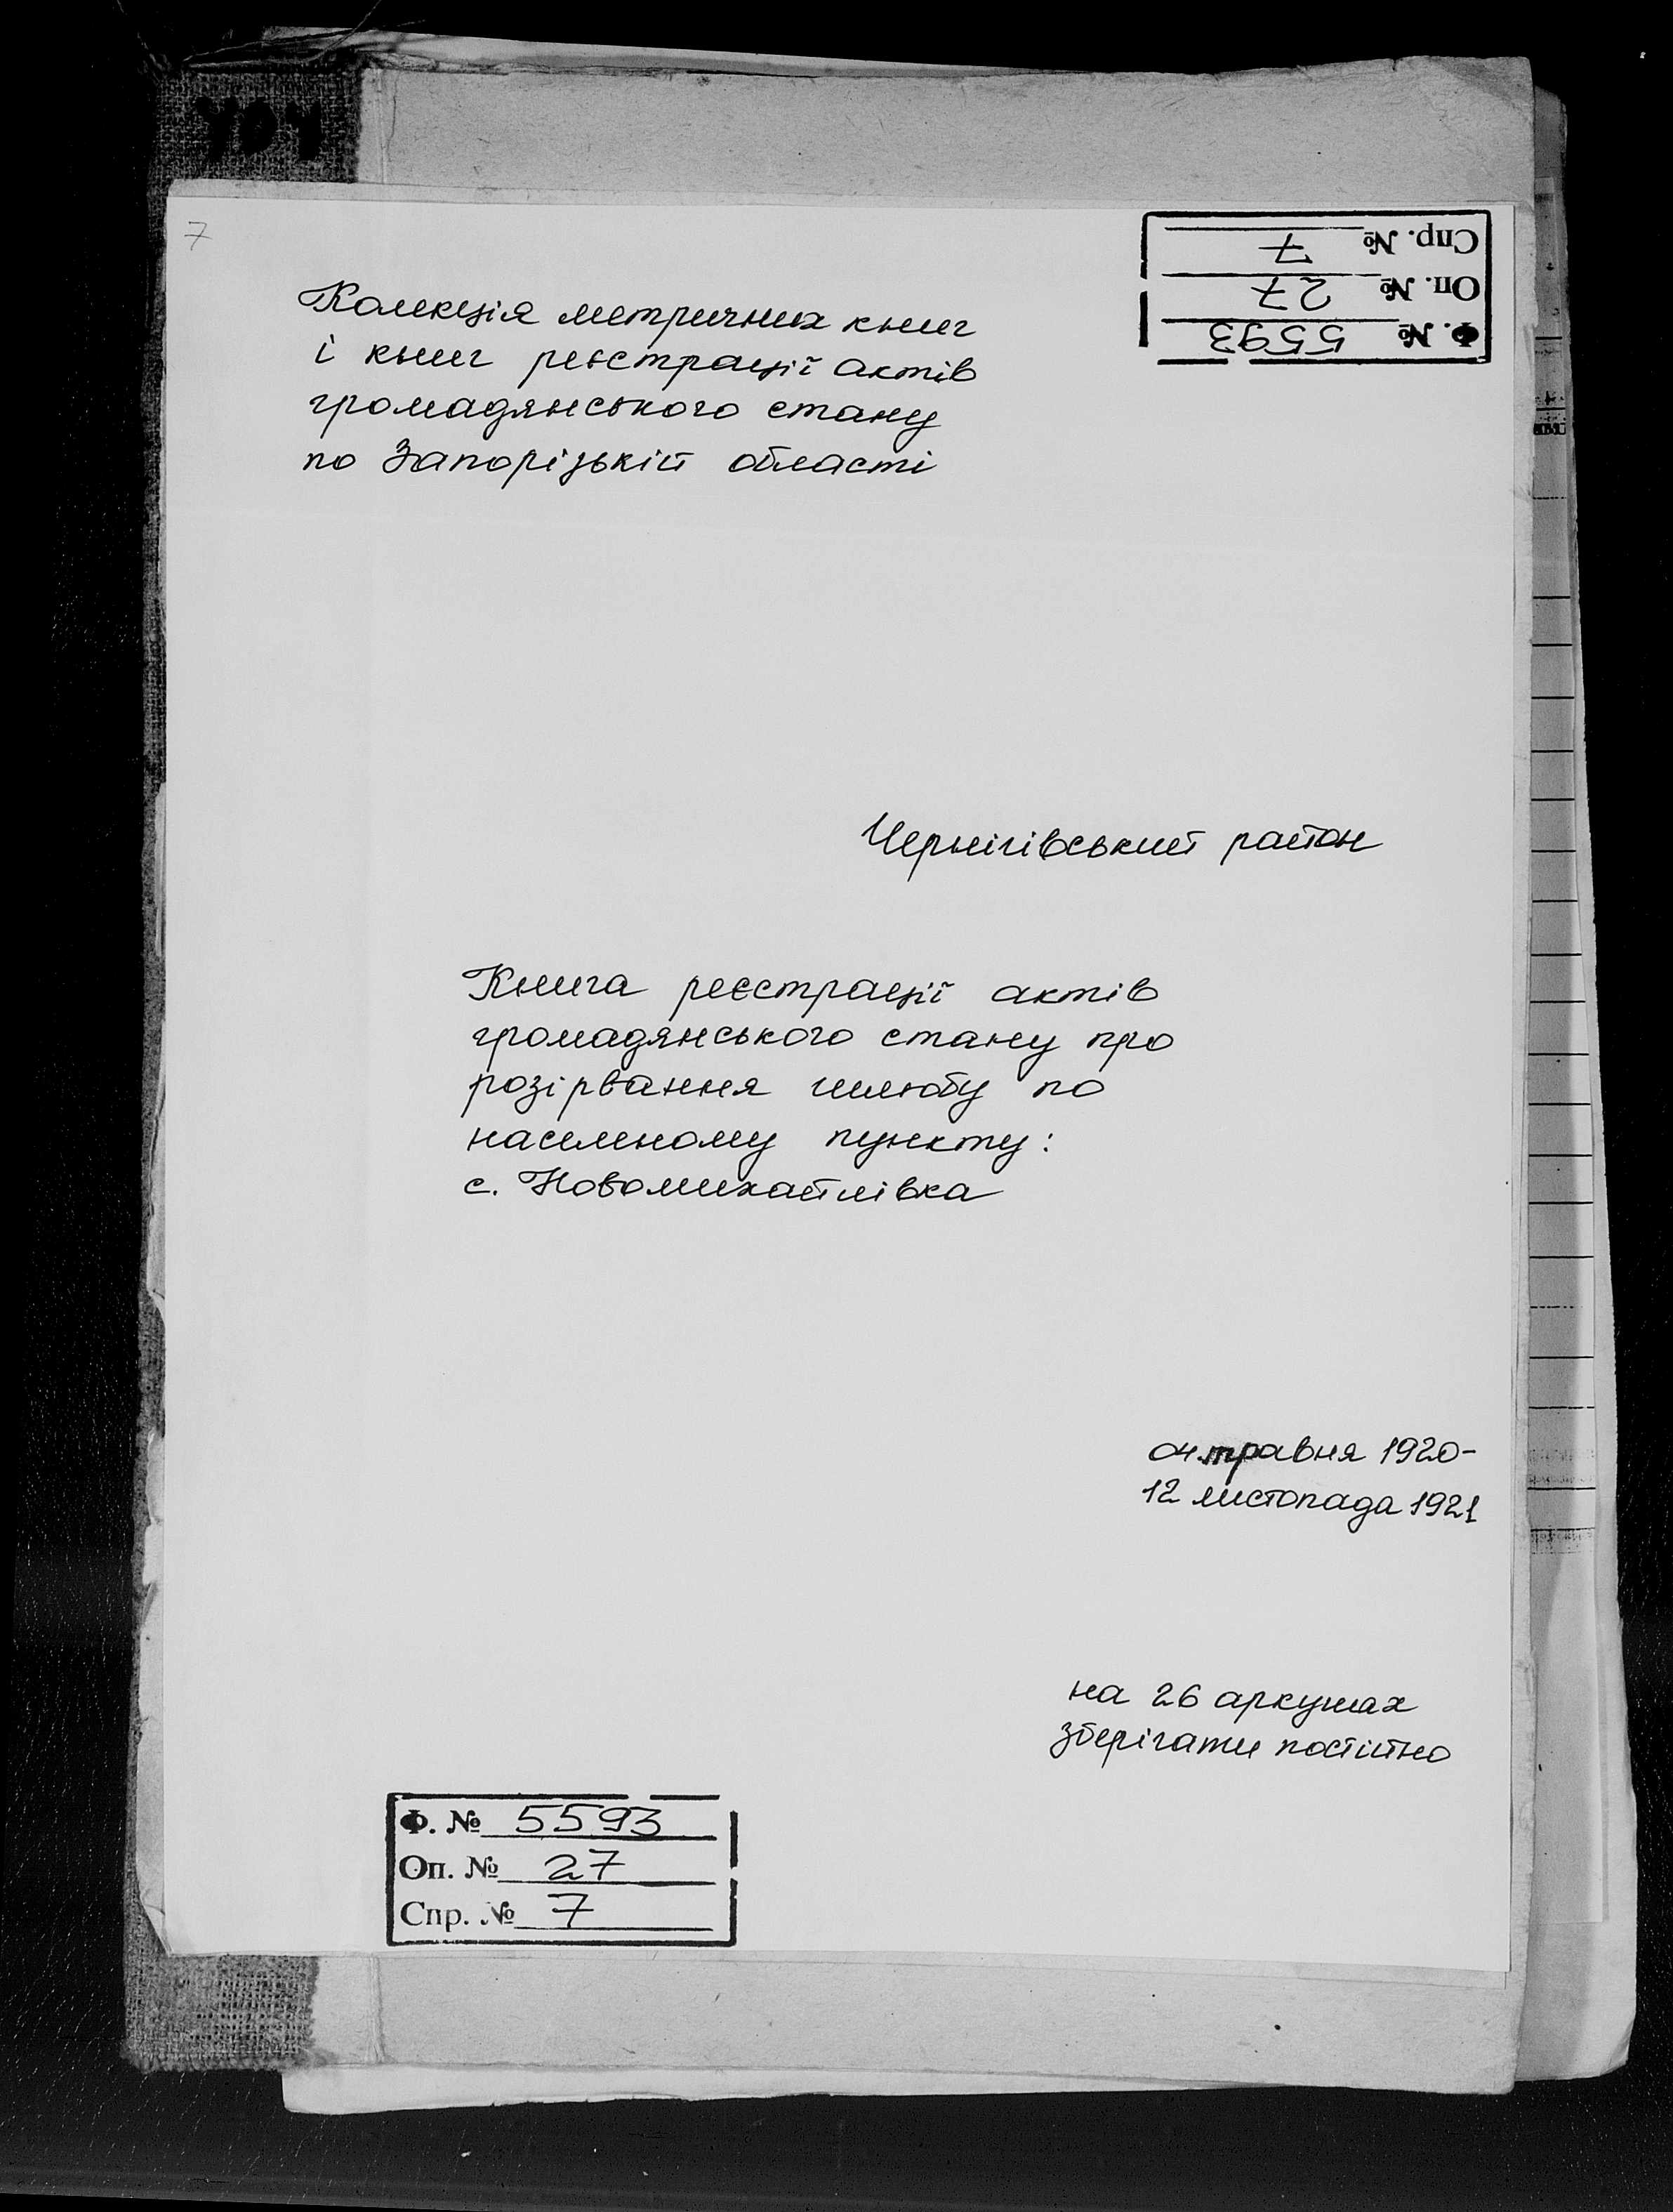 7
Спр. № 7
Оп. № 27
Ф. № 5593
Колекція метричних книг
і книг реєстрації актів
громадянського стану
по Запорізькій області
Чернігівський район
Книга реєстрації актів
громадянського стану про
розірвання шлюбу по
населеному пункту:
с. Новомихайлівка
04 травня 1920-
12 листопада 1921
на 26 аркушах
зберігати постійно
Ф. № 5593
Оп. № 27
Спр. № 7